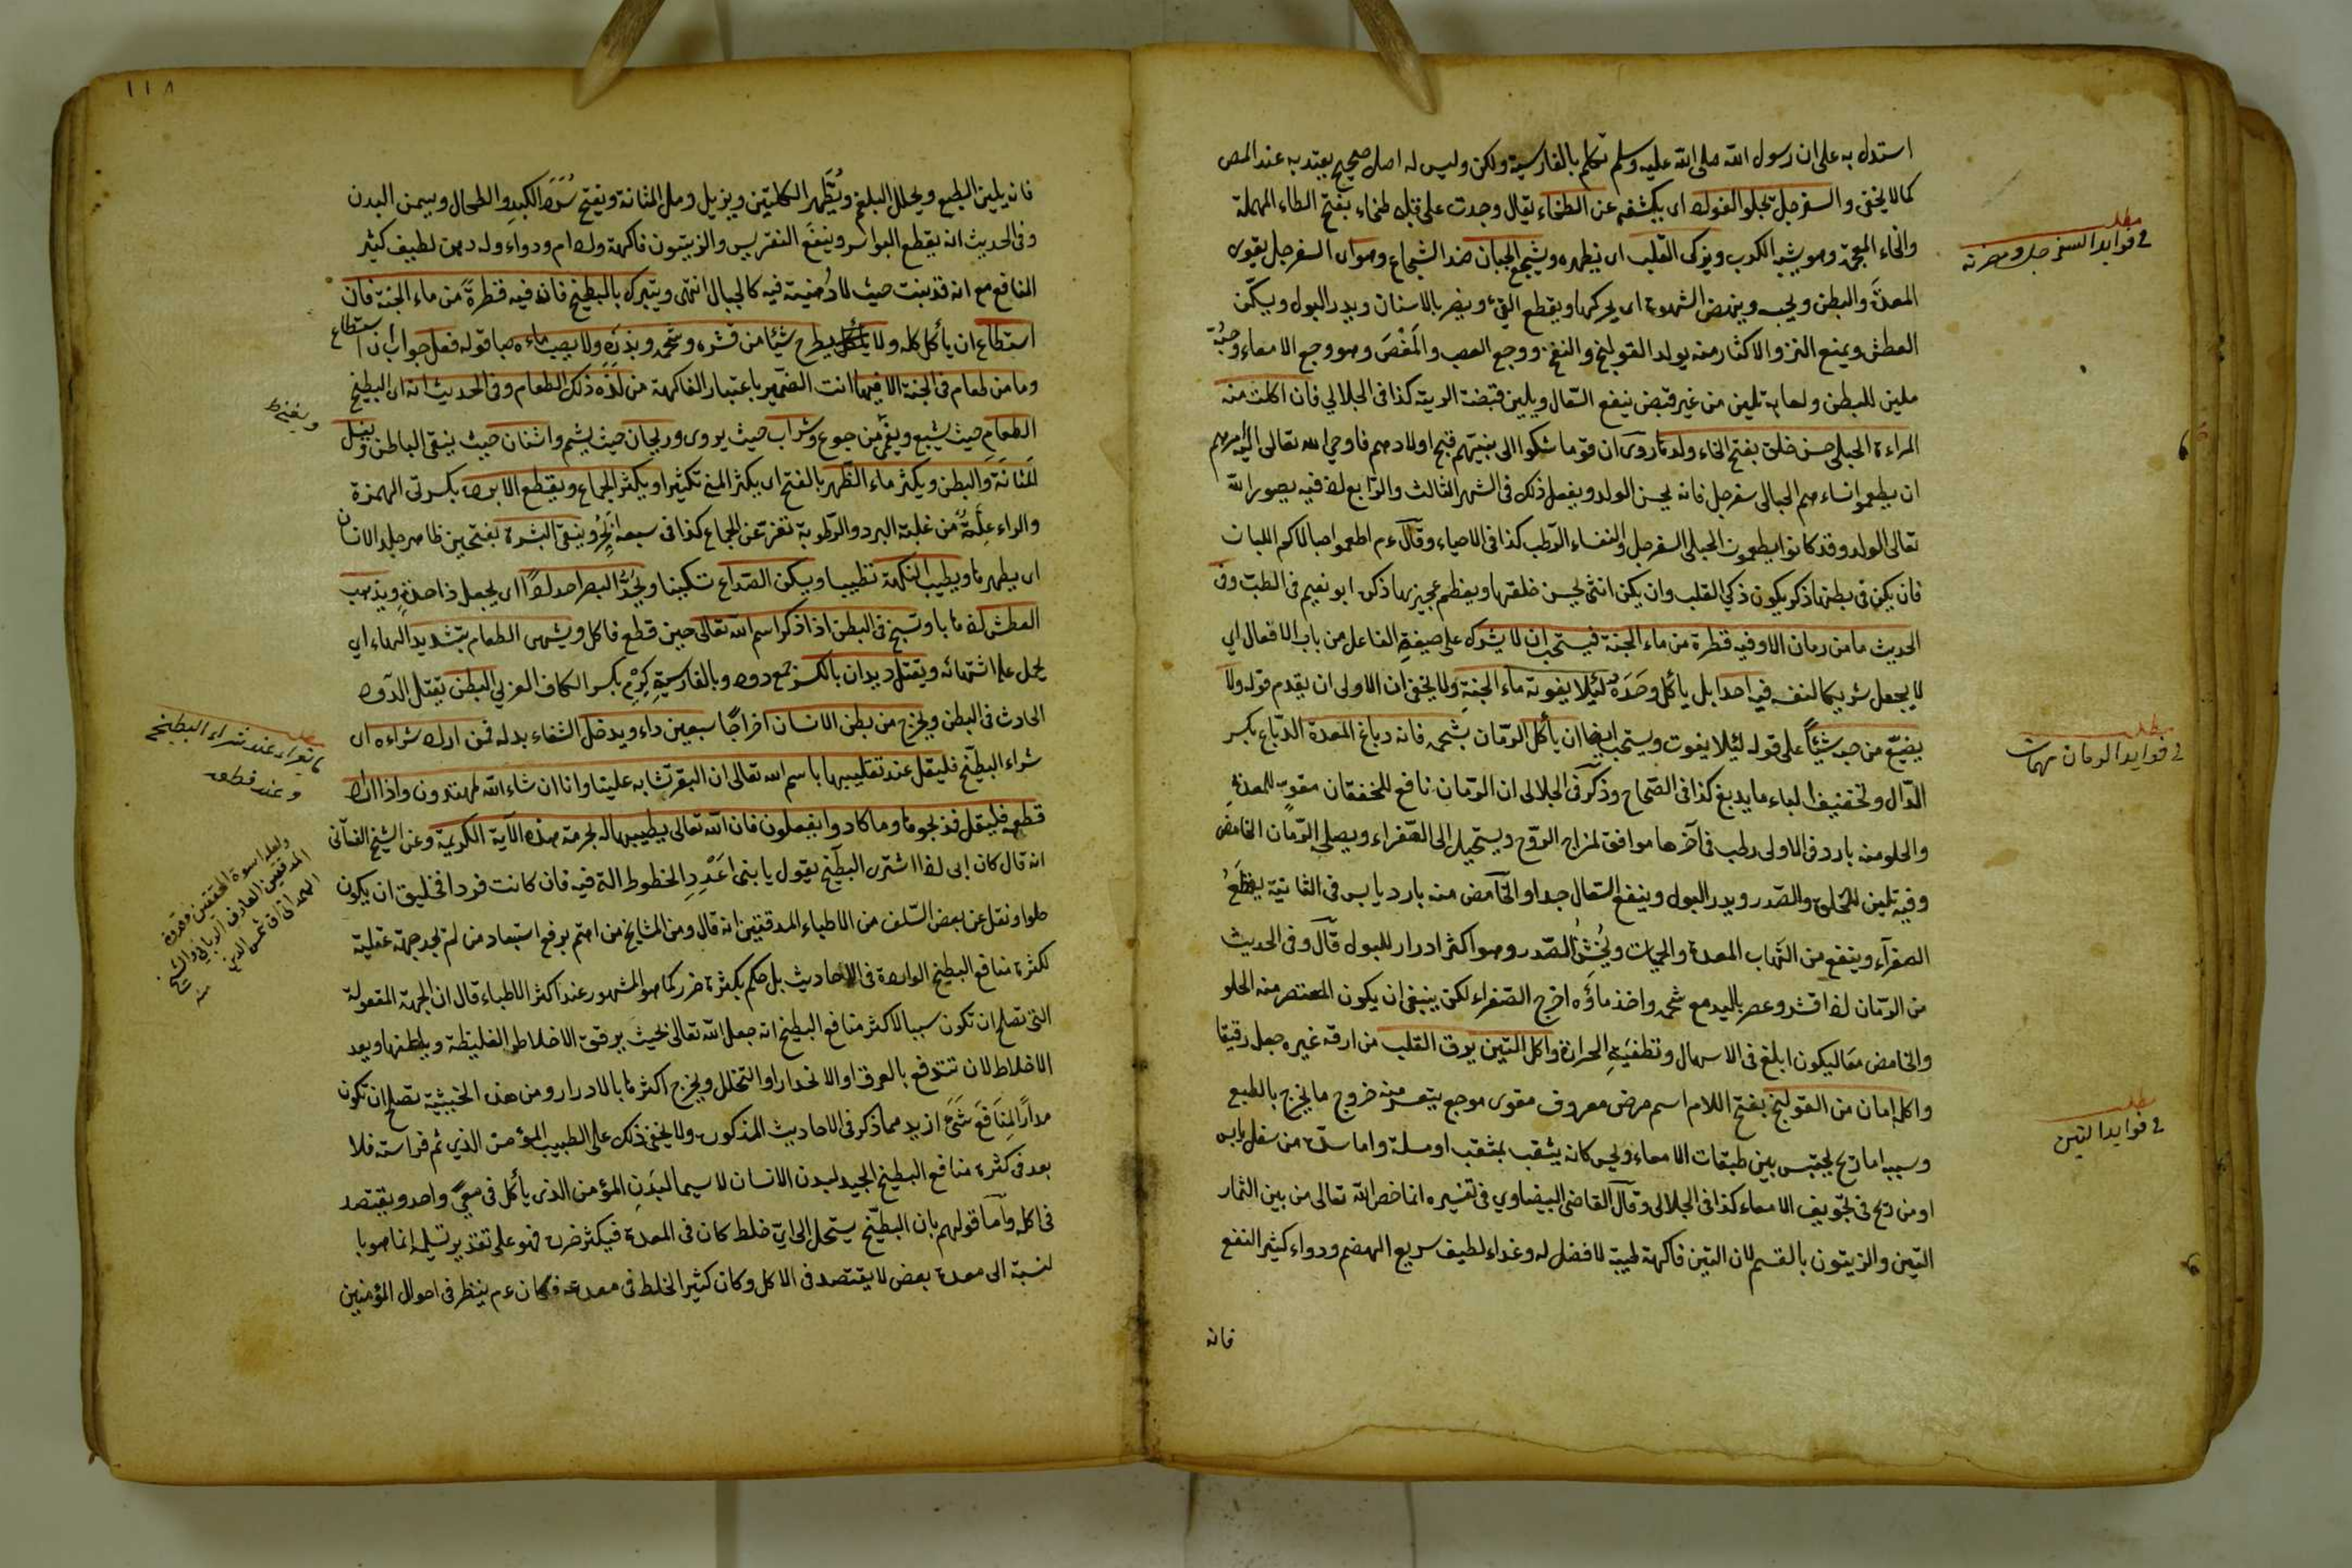 استدل به على ان رسول الله صلى الله عليه وسلم تكلم بالفارسية ولكن وليس له اصل صحيح يعتد به عند المص
كما لا يخفى والسفرجل يجلو الفواد اى يكشفه عن الطخاء يقال وجدت على قلبه طخاء بفتح الطاء المهملة
والخاء المعجمة وهو يشبه الكرب ويزكى القلب اى يطهره ويشجع الجبان ضد الشجاع وهواى السفرجل يقوى
المعدة والبطن ويجب وينهض الشهوة اى يحركها ويقطع القئ ويضر بالاسنان ويدر البول ويسكن
العطش ويمنع النزو الاكثار منه يولد القولنج والنفخ ووجع العصب والمغص وهو وجع الامعاء وحبه
ملين للبطن ولعابه تليين من غير قبض ينفع السعال ويلين قبضة الرية كذا فى الجلالى فان اكلت منه
المراءة الحبلى حسن خلق بفتح الخاء ولدها روى ان قوما شكوا الى نبيهم قبح اولادهم فاوحى الله تعالى اليه مرهم
ان يطعموا نساءهم الحبالى سفرجل فانه يحسن الولد ويفعل ذلك فى الشهر الثالث والرابع اذ فيه يصور الله
تعالى الولد وقد كانوا يطعمون الحبلى السفرجل والنفساء الرطب كذا فى الاحياء وقال ءم اطعموا حبالاكم اللبان
فان يكن فى بطنها ذكر يكون ذكى القلب وان يكن انثى يحسن خلقها ويعظم عجيزتها ذكره ابو نعيم فى الطب وفى
الحديث ما من رمان الا وفيه قطرة من ماء الجنة فيستحب ان لا يشرك على صيغة الفاعل من باب الافعال اى
لا يجعل شريكا لنفسه فيه احدا بل يأكل وحده لئلا يفوته ماء الجنة ولا يخفى ان الاولى ان يقدم قوله ولا
يضيع من حبه شيئا على قوله لئلا يفوت ويستحب ايضا ان يأكل الرمان بشحمه فانه دباغ المعدة الدباغ بكسر
الدال وتخفيف الباء ما يدبغ كذا فى الصحاح وذكر فى الجلالى ان الرمان نافع للخفقان مقو للمعدة
والحلو منه بارد فى الاولى رطب فى آخرها موافق لمزاج الروح ويستحيل الى الصفراء ويصلى الرمان الحامض
وفيه تليين للحلق والصدر ويدر البول وينفع السعال جدا والحامض منه بارد يابس فى الثانية يقطع
الصفرآء وينفع من التهاب المعدة والحميات ويخشن الصدر وهو اكثر ادرار للبول قال وفى الحديث
من الرمان اذا قشر وعصر باليد مع شحمه واخذ ماؤه اخرج الصفراء لكن ينبغى ان يكون المعتصر منه الحلو
والحامض معا ليكون ابلغ فى الاسهال وتطفية الحرارة واكل التين يرق القلب من ارقه غيره جعل رقيقا
واكله امان من القولنج بفتح اللام اسم مرض معروف معوى موجع يتعسر منه خروج ما يخرج بالطبع
وسببه اما ريح يحتبس بين طبقات الامعاء ويحس كانه يثقب بمثقب او مسلة واما سدة من سفل يابس
او من ريح فى تجويف الامعاء كذا فى الجلالى وقال القاضى البيضاوى فى تفسيره انما خص الله تعالى من بين الثمار
التين والزيتون بالقسم لان التين فاكهة طيبة لا فضل له وغداء لطيف سريع الهضم ودواء كثير النفع
فانه
مطلب
فى فوايد السفرجل ومضرته
مطلب
فى فوايد الرمان مهمات
مطلب
فى فوايد التين
١١٨
فانه يلين الطبع ويحلل البلغم ويطهر الكليتين ويزيل رمل المثانة ويفتح سدد الكبد والطحال ويسمن البدن
وفى الحديث انه يقطع البواسر وينفع النقريس والزيتون فاكهة وادام ودواء وله دهن لطيف كثير
النافع مع انه قد ينبت حيث لا دهنية فيه كالجبال انتهى ويتبرك بالبطيخ فان فيه قطرة من ماء الجنة فان
استطاع ان يأكل كله ولا يطرح شيئا من قشره وشحمه وبذره ولا يصب ماءه صبا قوله فعل جواب ان استطاع
وما من طعام فى الجنة الا فيها انث الضمير باعتبار الفاكهة من لذة ذلك الطعام وفى الحديث انه اى البطيخ
الطعام حيث يشبع ويغنى من جوع وشراب حيث يروى وريحان حيث يشم واشنان حيث ينقى الباطن ويغسل
المثانة والبطن ويكثر ماء الظهر بالفتح اى يكثر المنى تكثيرا ويكثر الجماع ويقطع الابردة بكسرتى الهمزة
والراء علة من غلبة البرد والرطوبة تفتر عن الجماع كذا فى سبعة ابحر وينقى البشرة بفتحين ظاهر جلد الانسان
اى يطهرها ويطيب النكهة تطييبا ويسكن الصداع تسكينا ويحد البصر احدادا اى يجعل ذا حدة ويذهب
العطش اذهابا ويسبح فى البطن اذا ذكر اسم الله تعالى حين قطع فاكل ويشهى الطعام بتشديد الهاء اى
يحمل على اشتهائه ويقتل ديدان بالكسر جمع دود وبالفارسية كرم بكسر الكاف العربى البطن يقتل الدود
الحادث فى البطن ويخرج من بطن الانسان اخراجا سبعين داء ويدخل الشفاء بدله فمن اراد شراءه اى
شراء البطيخ فليقل عند تقليبها باسم الله تعالى ان البقر تشابه علينا وانا ان شاء الله لمهتدون واذا اراد
قطعه فليقل فذبحوها وما كادوا يفعلون فان الله تعالى يطيبها له بحرمة هذه الآية الكريمة وعن الشيخ
انه قال كان ابى اذا اشترى البطيخ يقول يا بنى اعدد الخطوط التى فيه فان كانت فردا فخليق ان يكون
حلوا ونقل عن بعض السلف من الاطباء المدققين انه قال ومن المشايخ من اهتم برفع استبعاد من لم يجد جهة عقلية
لكثرة منافع البطيخ الواردة فى الاحاديث بل حكم بكثرة ضرر كما هو المشهور عند اكثر الاطباء قال ان الجهة المعقولة
التى تصلح ان تكون سببا لاكثر منافع البطيخ انه جعل الله تعالى بحيث يرقق الاخلاط الغليظة ويلطفها ويعد
الاخلاط لان تندفع بالعرق او الانحدار او التحلل ويخرج اكثرها بالادرار ومن هذه الحيثية تصلح ان تكون
مدارا لمنافع شتى ازيد مما ذكر فى الاحاديث المذكورة ولا يخفى ذلك على الطبيب المؤمن الذى تم فراسته فلا
بعد فى كثرة منافع البطيخ الجيد لبدن الانسان لا سيما لبدن المؤمن الذى يأكل فى معى واحد ويقتصد
فى اكله وآما قولهم بان البطيخ يستحيل الى اى خلط كان فى المعدة فيكثر ضرره فهو على تقدير تسليمه انما هو با
لنسبة الى معدة بعض لا يقتصد فى الاكل وكان كثير الخلط فى معدته فكان ءم ينظر فى احوال المؤمنين
مطلب
ما يقراء عند شراء البطيخ
وعند قطعه